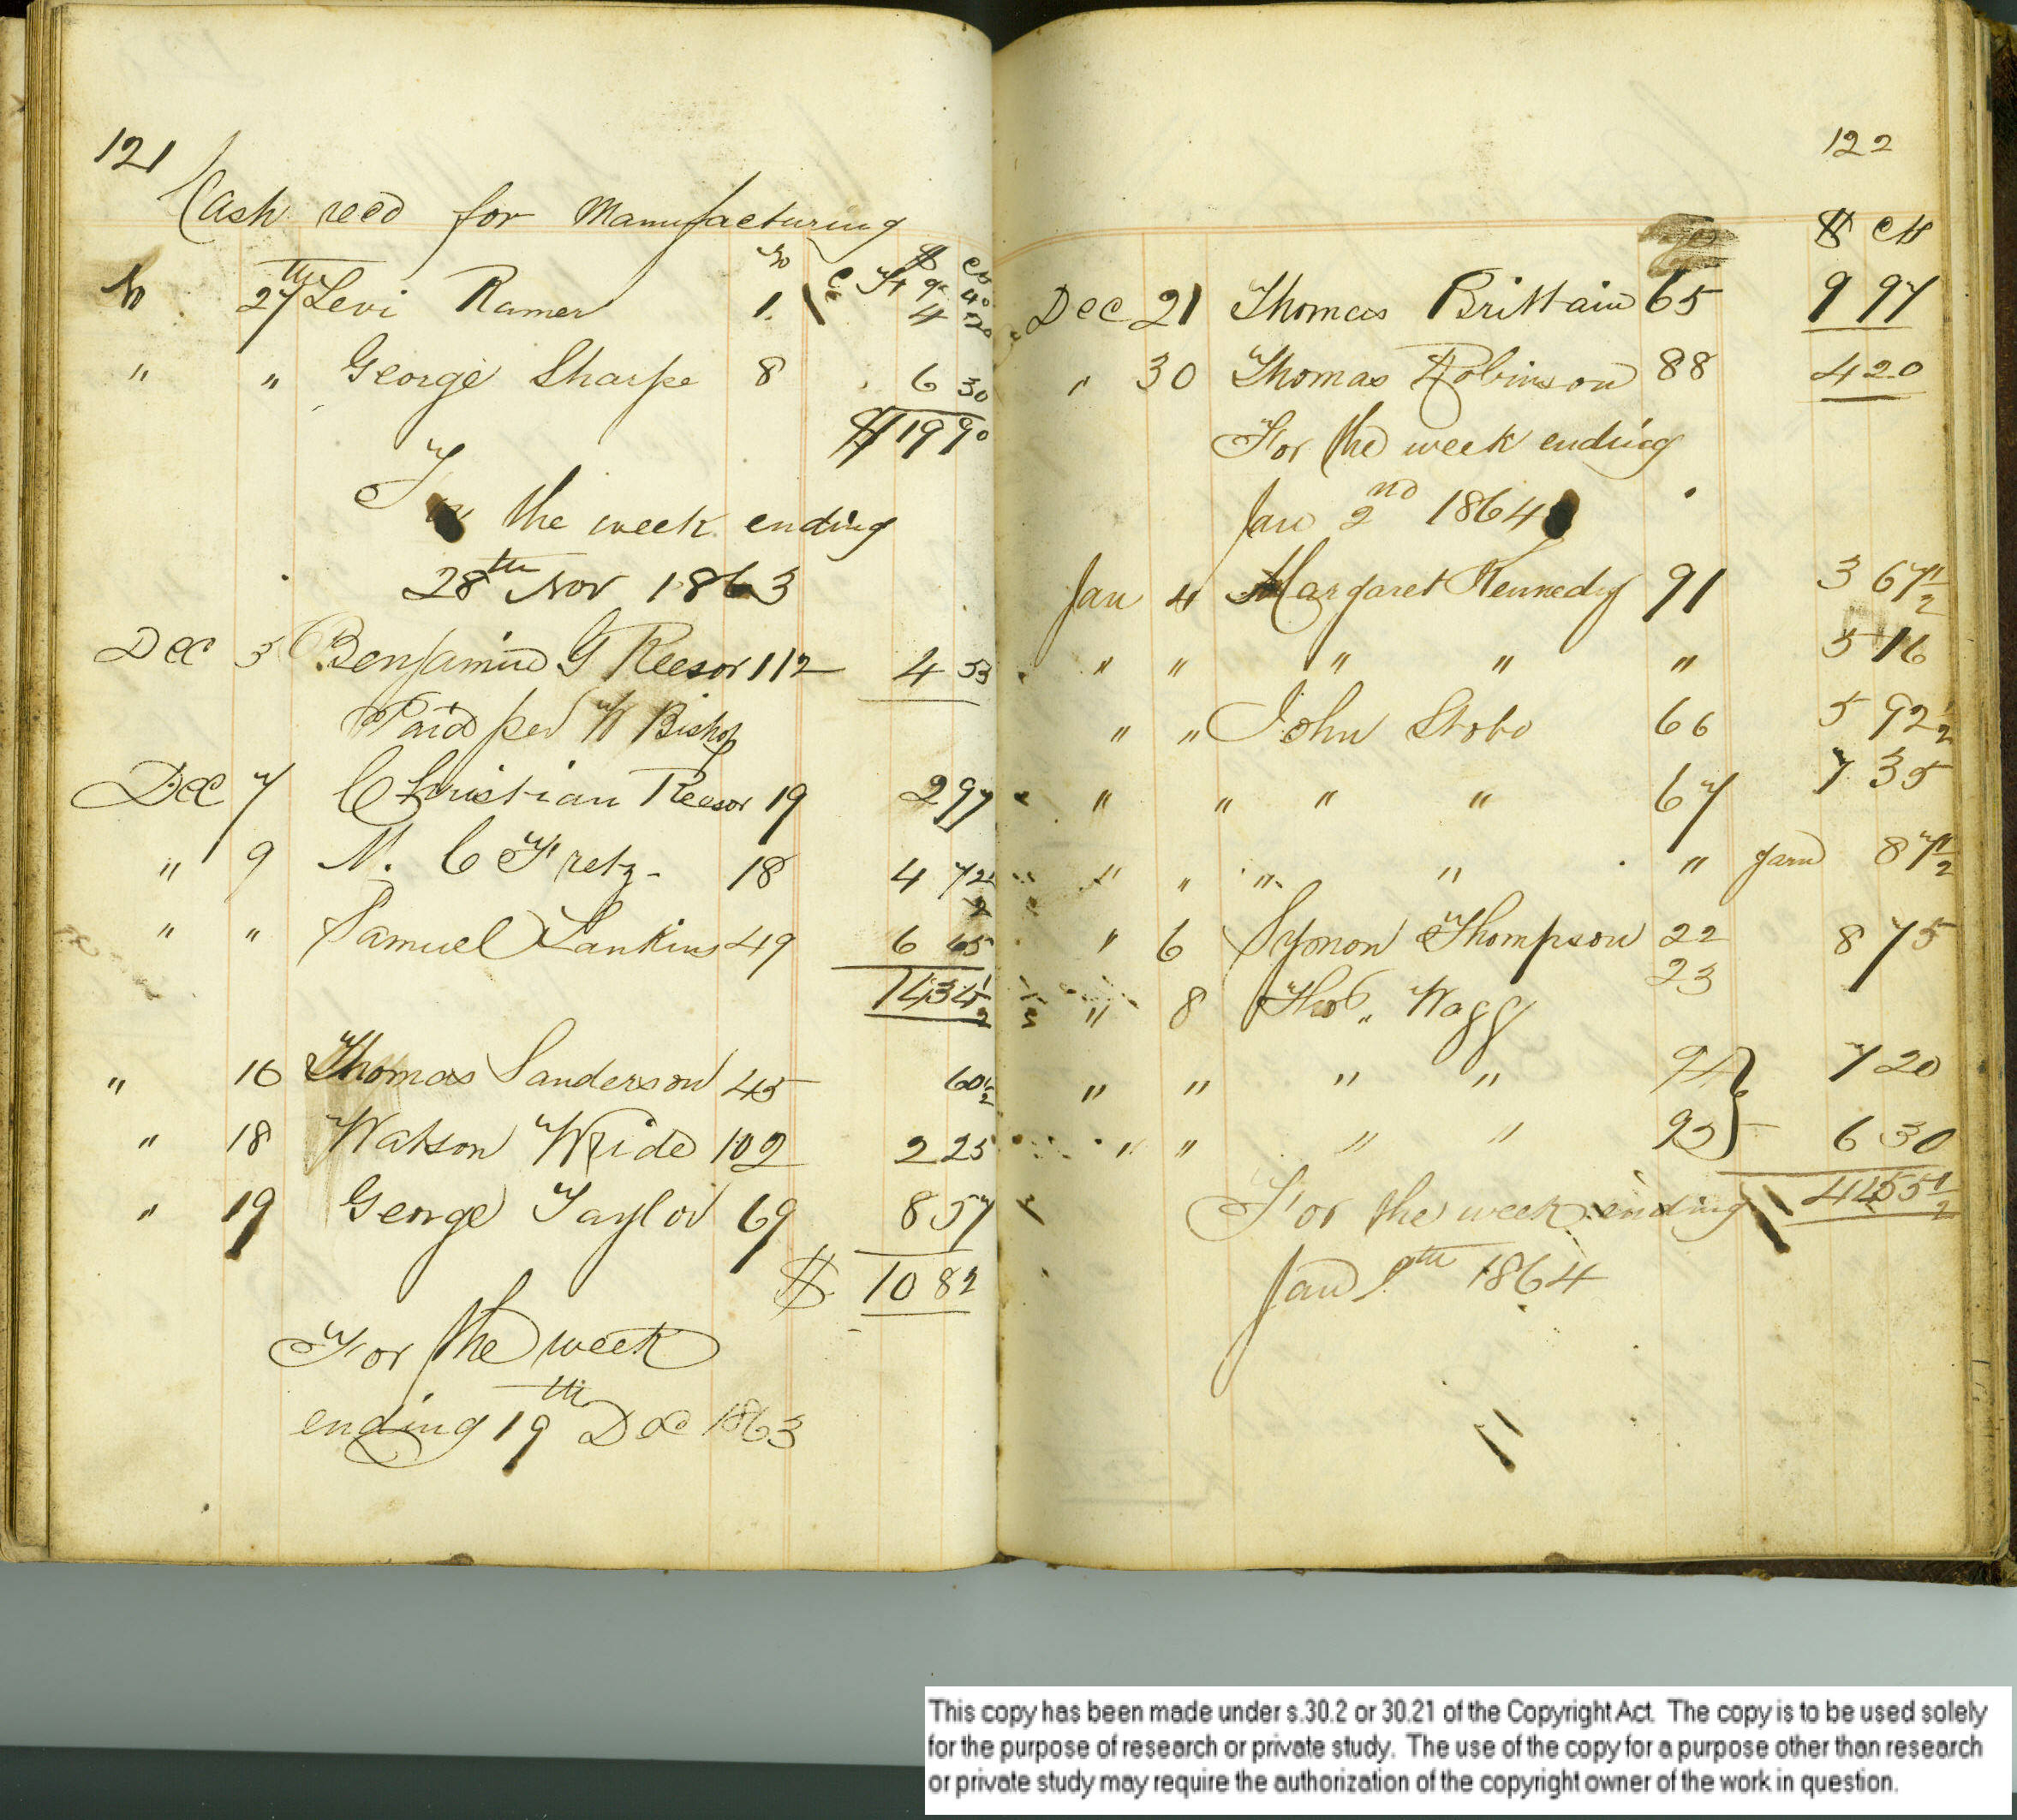 121
Cash recd for Manufacturing
No $ cts
27th Levi Ramer 1. 9 40
4 20
" " George Sharpe 8 6 30
$ 19 90
For the week ending
28th Nov 1863
Dec 5 Benjamin G Reesor 112 4 53
Paid per W Bishop
Dec 7 Christian Reesor 19 2 97
" 9 M. C Fretz - 18 4 72 1/2
" " Samuel Lankins 49 6 65
14 34 1/2
" 16 Thomas Sanderson 45 60 1/2
" 18 Watson Wride 102 2 25
" 19 George Taylor 69 8 57
$ 10 82
For the week
ending 19th Dec 1863
122
$ cts
Dec 21 Thomas Brittain 65 9 97
" 30 Thomas Robinson 88 4 20
For the week ending
Jan 2nd 1864
Jan 4 Margaret Kennedy 91 3 67 1/2
" " " " " 5 16
" " John Stobo 66 5 92 1/2
" " " " 67 7 35
" " " " " yarn 87 1/2
" 6 Symon Thompson 22 8 75
23
" 8 Thos. Wagg
" " " " 94 } 7 20
" " " " 95 } 6 30
For the week ending 44 55 1/2
Jan 9th 1864
This copy has been made under s.30.2 or 30.21 of the Copyright Act. The copy is to be used solely
for the purpose of research or private study. The use of the copy for a purpose other than research
or private study may require the authorization of the copyright owner of the work in question.